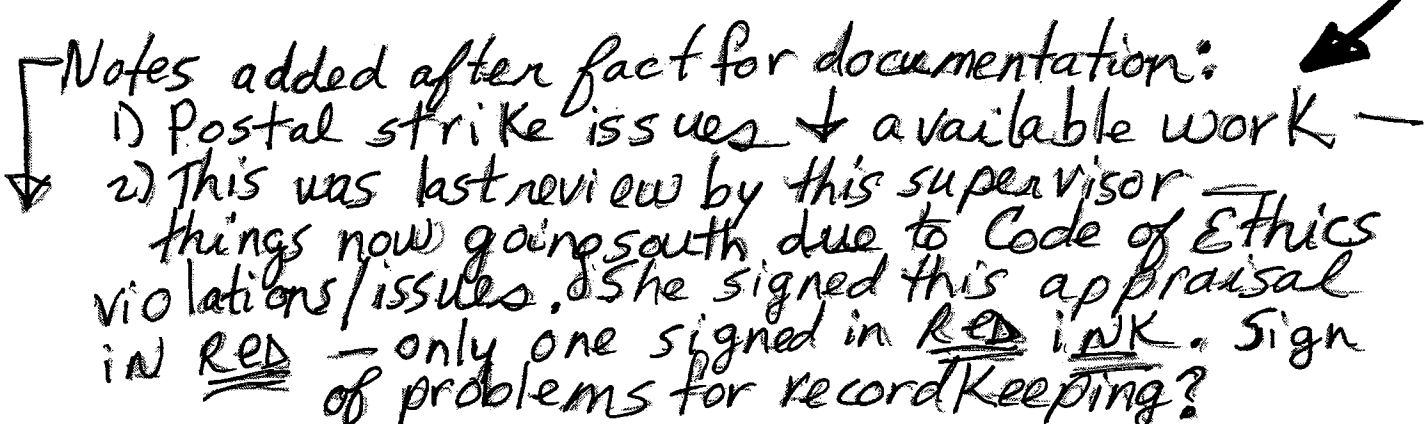 Notes added after fact for documentation:
1) Postal strike issues ↓ available work —
2) This was last review by this supervisor —
things now going south due to Code of Ethics
violations/issues. She signed this appraisal
in RED — only one signed in RED INK. Sign
of problems for record keeping?